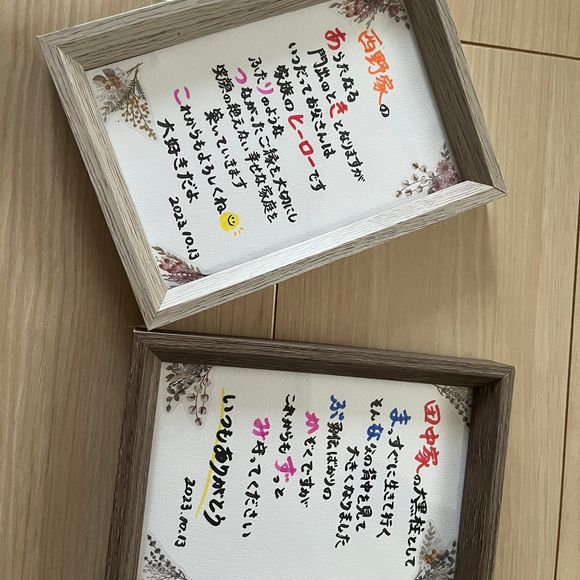 西野家の
あらたなる
門出のときとなりますが
いつだってお父さんは
家族のヒーローです
ふたりのような
つながったご縁を大切にし
笑顔の絶えない幸せな家庭を
築いていきます
これからもよろしくね
大好きだよ
2023.10.13
田中家の大黒柱として
まっすぐに生きて行く
そんな父の背中を見て
大きくなりました
ぶ勇伝ばかりの
かぞくですが
これからもずっと
み守ってください
いつもありがとう
2023.10.13